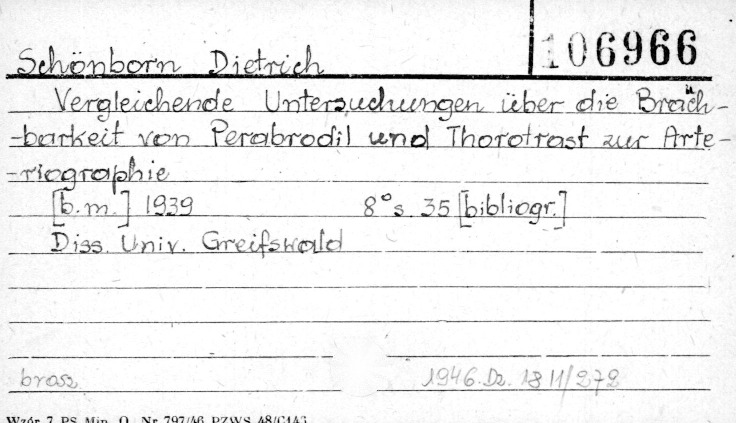 106966
Schönborn Dietrich
Vergleichende Untersuchungen über die Bräch-
-barkeit von Perabrodil und Thorotrast zur Arte-
-riographie
[b.m.] 1939 8° s. 35 [bibliogr.]
Diss. Univ. Greifswald
brosz 1946. Dz. 18 11/272
Wzór 7 PS Min. O. Nr 797/46 PZWS 48/C143